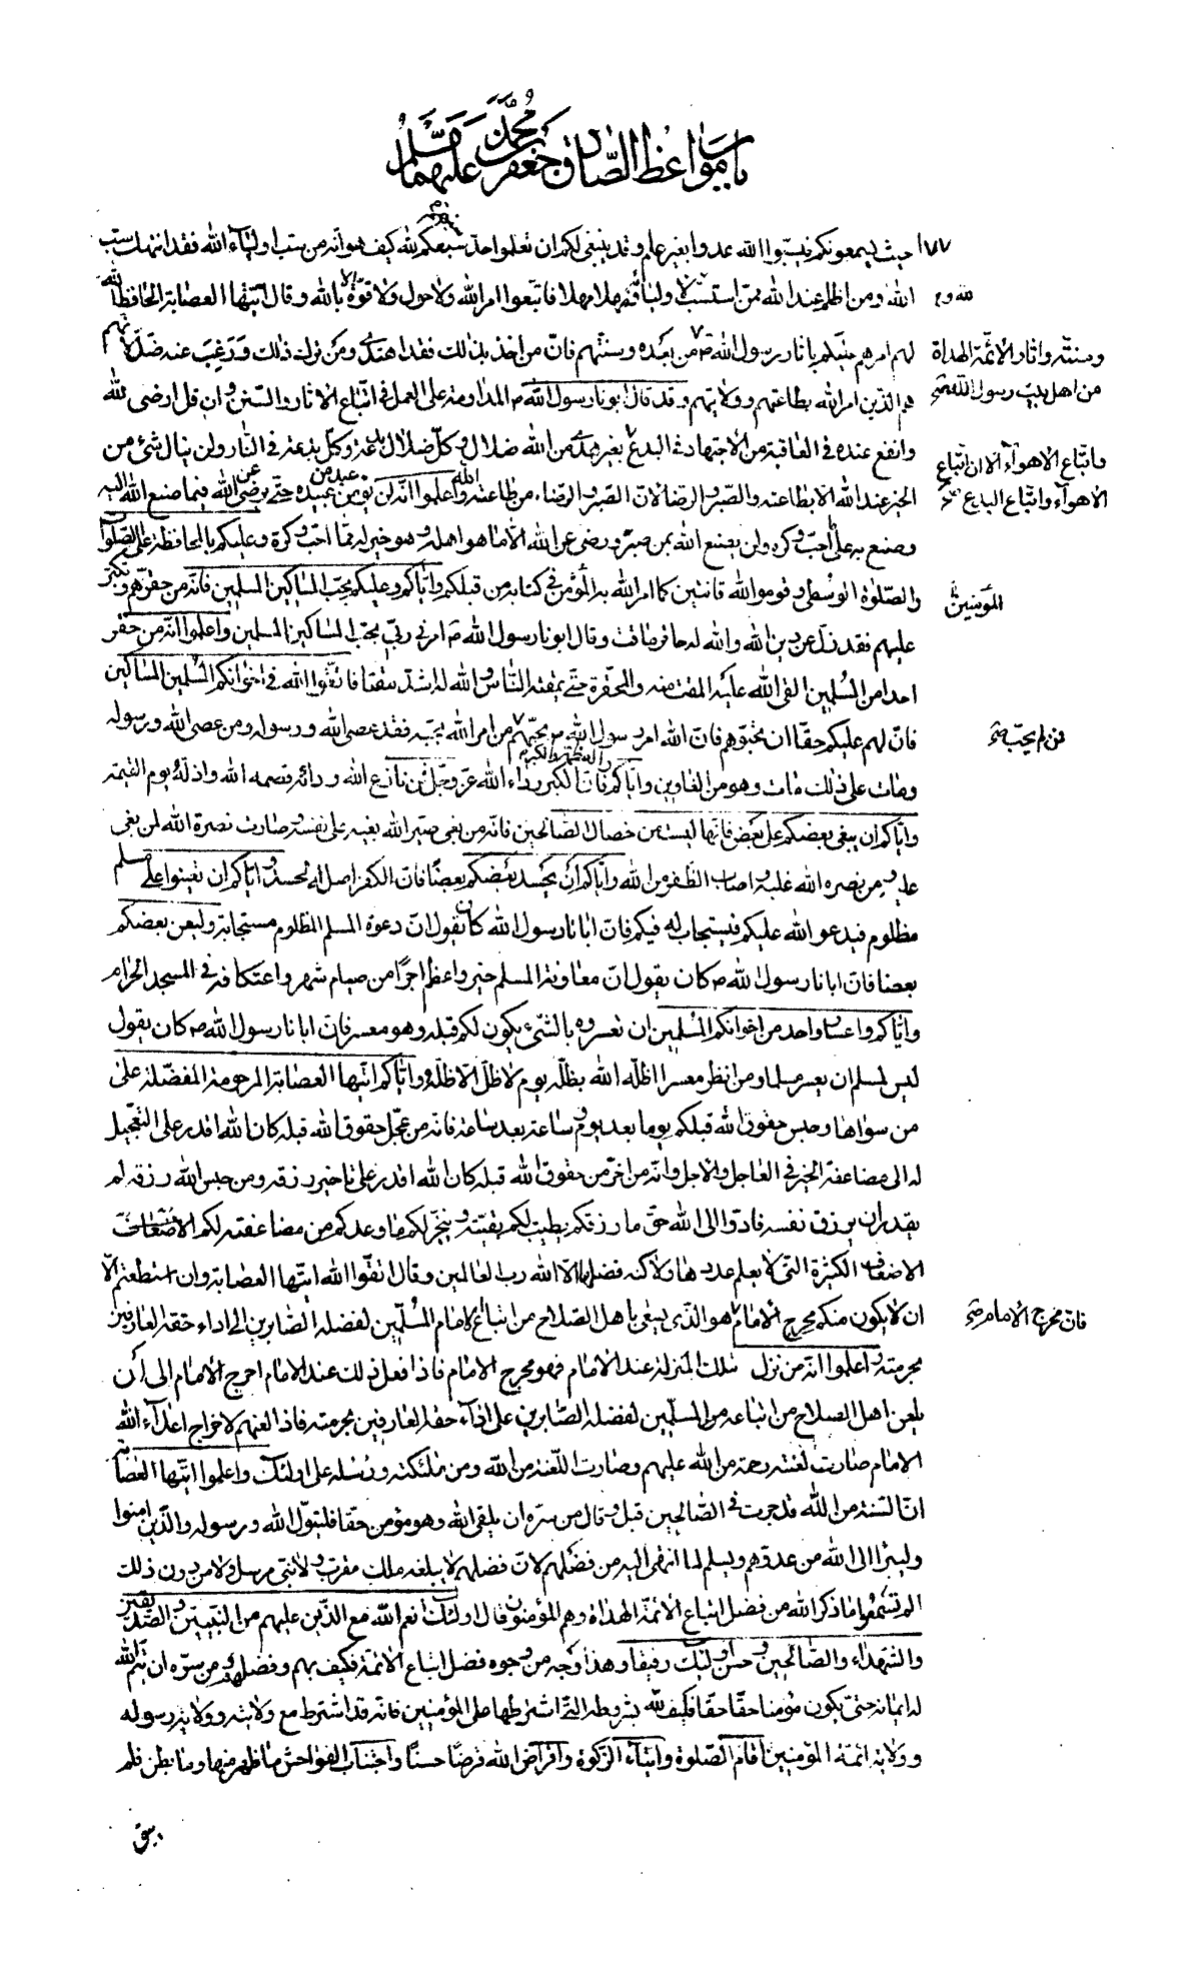 باب مواعظ الصادق جعفر بن محمد عليهما السلام
١٧٧ حيث يسمعونكم فيسبوا الله عدوا بغير علم وقد ينبغى لكم ان تعلموا حد سبهم لله كيف هو انه من سب اولياء الله فقد انتهك سب
الله ومن اظلم عند الله ممن استسب لله ولاوليائه فمهلا مهلا فاتبعوا امر الله ولا حول ولا قوة الا بالله وقال ايتها العصابة الحافظ الله
لله و
لهم امرهم عليكم باثار رسول الله ص من بعده وسنتهم فان من اخذ بذلك فقد اهتدى ومن ترك ذلك ورغب عنه ضل لانهم
وسنته واثار الائمة الهداة
هم الذين امر الله بطاعتهم وولايتهم وقد قال ابونا رسول الله ص المداومة على العمل فى اتباع الاثار والسنن وان قل ارضى لله
من اهل بيت رسول الله
وانفع عنده فى العاقبة من الاجتهاد فى البدع بغير هدى من الله ضلال وكل ضلال بدعة وكل بدعة فى النار ولن ينال شئ من
واتباع الاهواء الا ان اتباع
الخير عند الله الا بطاعته والصبر والرضا لان الصبر والرضاء من طاعة الله واعلموا انه لن يؤمن عبد من عبيده حتى يرضى عن الله فيما صنع الله اليه
الاهواء واتباع البدع
وصنع به على ما احب وكره ولن يصنع الله بمن صبر ورضى عن الله الا ما هو اهله وهو خير له مما احب وكره وعليكم بالمحافظة على الصلوات
والصلوة الوسطى وقوموا لله قانتين كما امر الله به المؤمنين فى كتابه من قبلكم واياكم وعليكم بحب المساكين المسلمين فانه من حقرهم وتكبر
المؤمنين
عليهم فقد زل عن دين الله والله له حاقر ماقت وقال ابونا رسول الله ص امرنى ربى بحب المساكين المسلمين واعلموا انه من حقر
احدا من المسلمين القى الله عليه المقت منه والمحقرة حتى يمقته الناس والله له اشد مقتا فاتقوا الله فى اخوانكم المسلمين المساكين
فان لهم عليكم حقا ان تحبوهم فان الله امر رسول الله ص بحبهم من امر الله بحبه فقد عصى الله ورسوله ومن عصى الله ورسوله
فمن لم يحب
ومات على ذلك مات وهو من الغاوين واياكم والعظمة والكبر فان الكبر رداء الله عز وجل فمن نازع الله ردائه قصمه الله واذله يوم القيمة
واياكم ان يبغى بعضكم على بعض فانها ليست من خصال الصالحين فانه من بغى صير الله بغيه على نفسه وصارت نصرة الله لمن بغى
عليه ومن نصره الله غلب واصاب الظفر من الله واياكم ان يحسد بعضكم بعضا فان الكفر اصله الحسد واياكم ان تعينوا على مسلم
مظلوم فيدعو الله عليكم فيستجاب له فيكم فان ابانا رسول الله كان يقول ان دعوة المسلم المظلوم مستجابة وليعن بعضكم
بعضا فان ابانا رسول الله ص كان يقول ان معاونة المسلم خير واعظم اجرا من صيام شهر واعتكافه فى المسجد الحرام
واياكم واعسار احد من اخوانكم المسلمين ان تعسروه بالشئ يكون لكم قبله وهو معسر فان ابانا رسول الله ص كان يقول
ليس لمسلم ان يعسر مسلما ومن انظر معسرا اظله الله بظله يوم لا ظل الا ظله واياكم ايتها العصابة المرحومة المفضلة على
من سواها وحبس حقوق الله قبلكم يوما بعد يوم وساعة بعد ساعة فانه من عجل حقوق الله قبله كان الله اقدر على التعجيل
له الى مضاعفة الخير فى العاجل والاجل وانه من اخر من حقوق الله قبله كان الله اقدر على تاخير رزقه ومن حبس الله رزقه لم
يقدر ان يرزق نفسه فادوا الى الله حق ما رزقكم يطيب لكم بقيته وينجز لكم ما وعدكم من مضاعفته لكم الاضعاف
الاضعاف الكثيرة التى لا يعلم عددها ولا كنه فضلها الا الله رب العالمين وقال اتقوا الله ايتها العصابة وان استطعتم الا
ان لا يكون منكم محرج الامام هو الذى يسعى باهل الصلاح من اتباع الامام المسلمين لفضله الصابرين على اداء حقه العارفين
فان محرج الامام
بحرمته واعلموا انه من نزل تلك المنزلة عند الامام فهو محرج الامام فاذا فعل ذلك عند الامام احرج الامام الى ان
يلعن اهل الصلاح من اتباعه من المسلمين لفضله الصابرين على اداء حقه العارفين بحرمته فاذا لعنهم لاحراج اعداء الله
الامام صارت لعنته رحمة من الله عليهم وصارت اللعنة من الله ومن ملئكته ورسله على اولئك واعلموا ايتها العصابة
ان السنة من الله قد جرت فى الصالحين قبل وقال من سره ان يلقى الله وهو مؤمن حقا فليتول الله ورسوله والذين امنوا
وليبرا الى الله من عدوهم ويسلم لما انتهى اليه من فضلهم لان فضلهم لا يبلغه ملك مقرب ولا نبى مرسل ولا من دون ذلك
الم تسمعوا ما ذكر الله من فضل اتباع الائمة الهداة وهم المؤمنون قال اولئك انعم الله مع الذين عليهم من النبيين والصديقين
والشهداء والصالحين وحسن اولئك رفيقا وهذا وجه من وجوه فضل اتباع الائمة فكيف بهم وفضلهم ومن سره ان يتم الله
له ايمانه حتى يكون مؤمنا حقا حقا فليف لله بشروطه التى اشترطها على المؤمنين فانه قد اشترط مع ولايته وولاية رسوله
وولاية ائمة المؤمنين اقام الصلوة وايتاء الزكوة واقراض الله قرضا حسنا واجتناب الفواحش ما ظهر منها وما بطن فلم
يبق